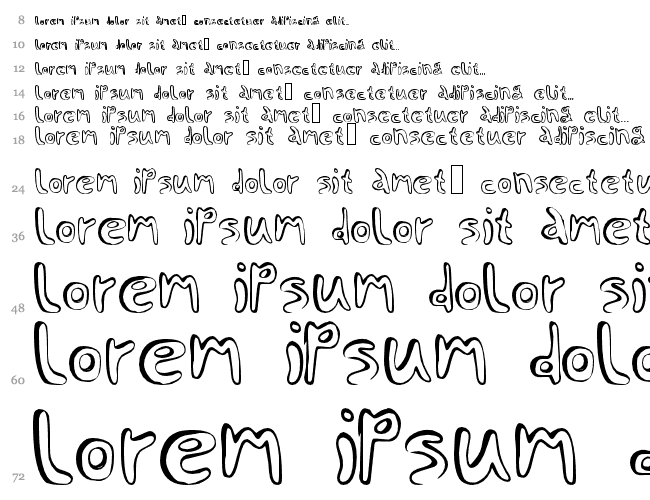 8 lorem ipsum dolor sit amet▯ consectetuer adipiscing elit...
10 lorem ipsum dolor sit amet▯ consectetuer adipiscing elit...
12 lorem ipsum dolor sit amet▯ consectetuer adipiscing elit...
14 lorem ipsum dolor sit amet▯ consectetuer adipiscing elit...
16 lorem ipsum dolor sit amet▯ consectetuer adipiscing elit...
18 lorem ipsum dolor sit amet▯ consectetuer adipiscing
24 lorem ipsum dolor sit amet▯ consectetu
36 lorem ipsum dolor sit amet
48 lorem ipsum dolor si
60 lorem ipsum dolo
72 lorem ipsum d